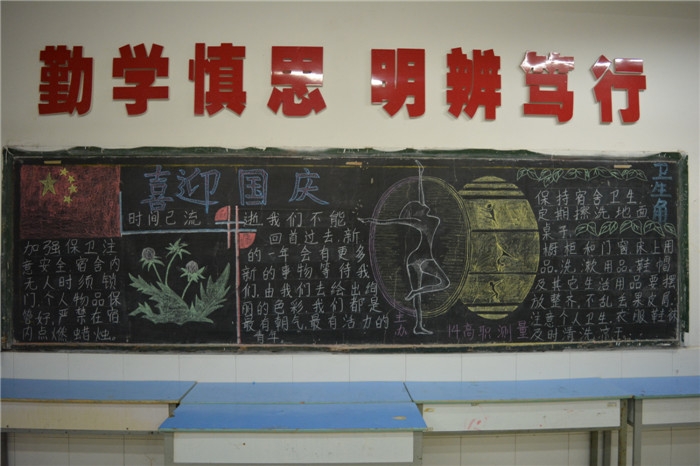 勤学慎思 明辨笃行
喜迎国庆
加强保卫注
意安全宿舍内
无人时须锁
门,个人物品保
管好,严禁在宿
内点燃蜡烛。
时间已流逝,我们不能
回首过去,新
的一年会有更多
新的事物等待我
们,由我们去给出
的色彩,我们都是
最有朝气,最有活力的
主办
14高职测量
卫生角
保持宿舍卫生,
定期擦洗地面
桌子,
橱柜和门窗床上用
品。洗漱用品。鞋帽
及其它生活用品要摆
放整齐,不乱丢果皮屑,
注意个人卫生衣服鞋
及时清洗